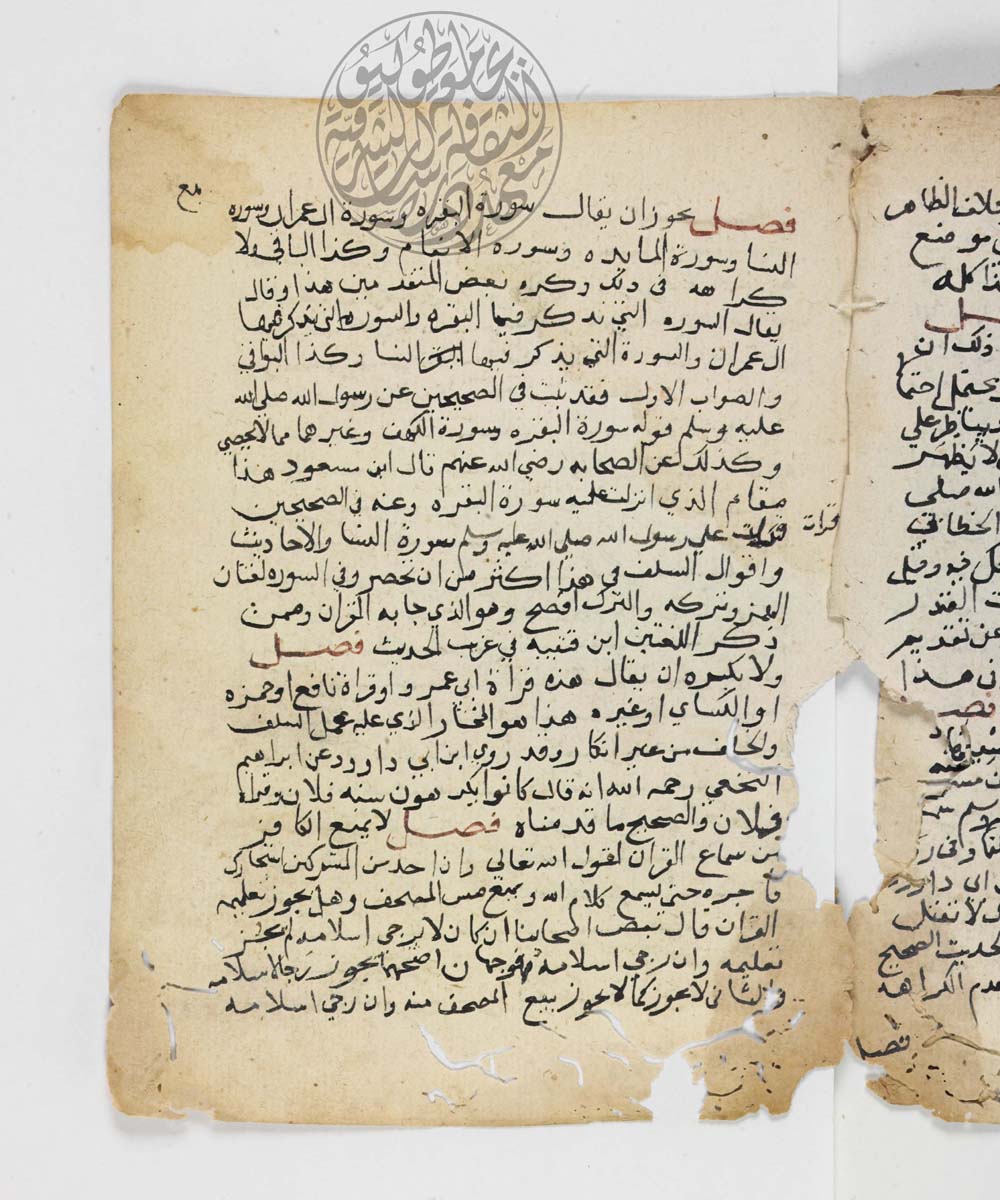 فصل يجوز ان يقال سورة البقره وسورة ال عمران وسوره
النسا وسورة المايده وسوره الانعام وكذا الباقي ولا
كراهه في ذلك وكره بعض المتقدمين هذا وقال
يقال السوره التي تذكر فيها البقره والسوره التي يذكر فيها
ال عمران والسورة التي يذكر فيها النسا وكذا البواقي
والصواب الاول فقد ثبت في الصحيحين عن رسول الله صلى الله
عليه وسلم قوله سورة البقره وسورة الكهف وغيرهما مما لا يحصى
وكذلك عن الصحابه رضي الله عنهم قال ابن مسعود هذا
مقام الذي انزلت عليه سورة البقره وعنه في الصحيحين
قرات
على رسول الله صلى الله عليه وسلم سورة النسا والاحاديث
واقوال السلف في هذا اكثر من ان تحصر وفي السوره لغتان
الهمز وتركه والترك افصح وهو الذي جا به القران وممن
ذكر اللغتين ابن قتيبه في غريب الحديث فصل
ولا يكره ان يقال هذه قراة ابي عمرو او قراة نافع او حمزه
او الكساي او غيره هذا هو المختار الذي عليه عمل السلف
والخلف من غير انكار وقد روى ابن ابي داود عن ابراهيم
النخعي رحمه الله انه قال كانوا يكرهون سنه فلان وقراه
فلان والصحيح ما قدمناه فصل لا يمنع الكافر
من سماع القران لقول الله تعالى وان احد من المشركين استجارك
فاجره حتى يسمع كلام الله ويمنع مس المصحف وهل يجوز تعليمه
القران قال بعض اصحابنا ان كان لا يرجى اسلامه لم يجز
تعليمه وان رجي اسلامه فوجهان اصحهما يجوز رجا لاسلامه
والثاني لا يجوز كما لا يجوز بيع المصحف منه وان رجي اسلامه
خلاف الظاهر
موضع
كله
ذلك ان
يحتمل احتما
لا يظهر
الله صلى
الخطا في
فيه وقيل
عن تقديم
هذا
فصل
ابي داود
لا تقتل
الحديث الصحيح
عدم الكراهة
فصل